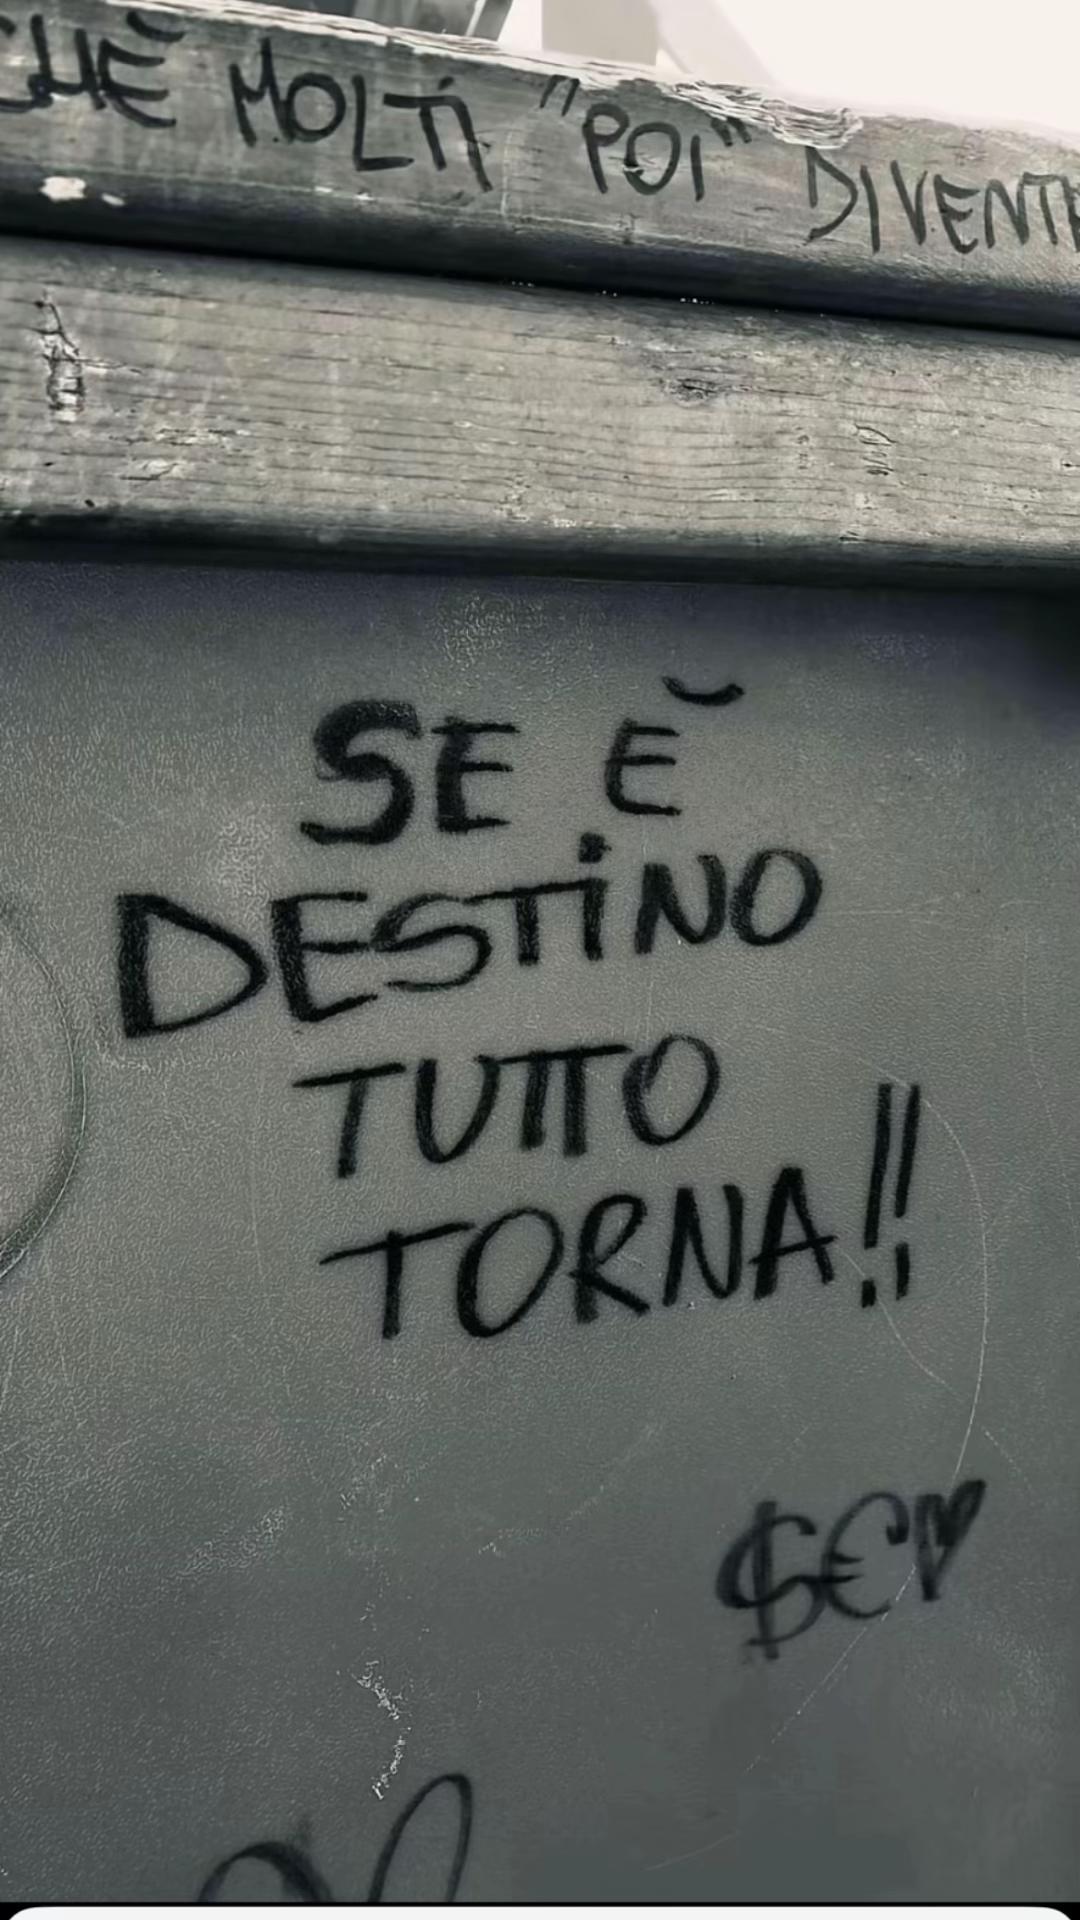 CHÈ MOLTI "POI" DIVENTA
SE È
DESTINO
TUTTO
TORNA!!
$€♥